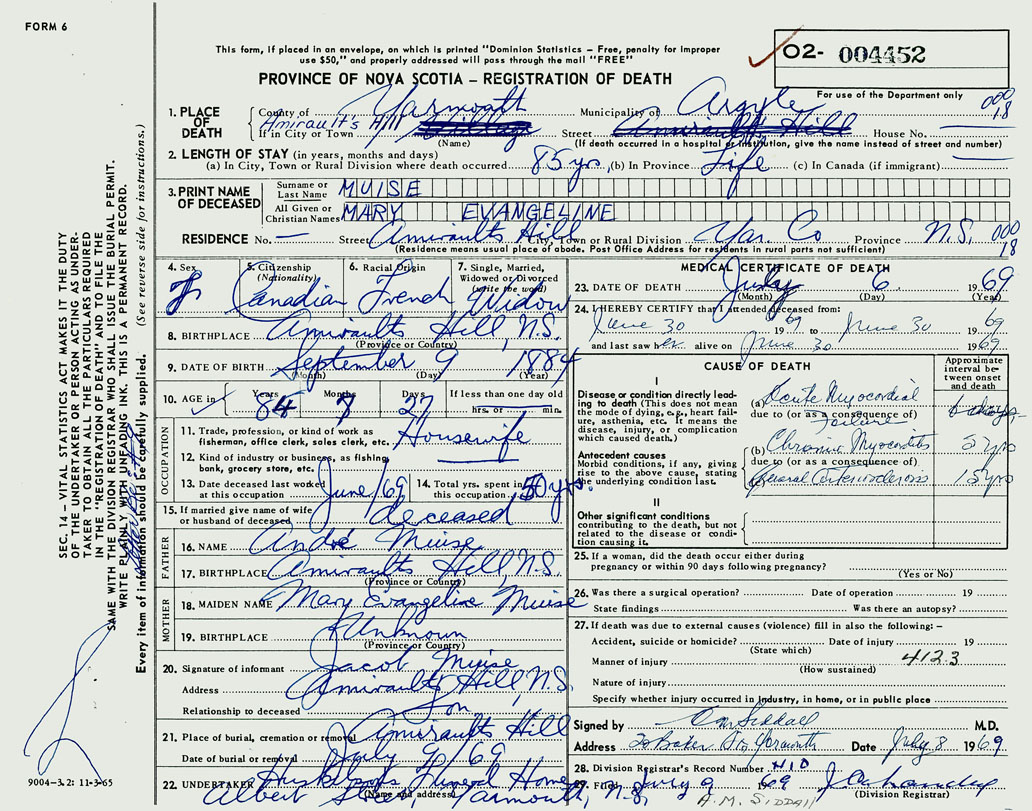 FORM 6
This form, if placed in an envelope, on which is printed "Dominion Statistics – Free, penalty for improper
use $50," and properly addressed will pass through the mail "FREE"
O2- 004452
PROVINCE OF NOVA SCOTIA – REGISTRATION OF DEATH
For use of the Department only
1. PLACE OF DEATH
County of Yarmouth Municipality of Argyle 000 18
Amirault's Hill
If in City or Town Village Street Amiraults Hill House No. —
(Name) (If death occurred in a hospital or institution, give the name instead of street and number)
2. LENGTH OF STAY (in years, months and days)
(a) In City, Town or Rural Division where death occurred 85 yrs, (b) In Province Life (c) In Canada (if immigrant) —
3. PRINT NAME OF DECEASED
Surname or Last Name MUISE
All Given or Christian Names MARY EVANGELINE
RESIDENCE No. — Street Amiraults Hill City, Town or Rural Division Yar. Co Province N.S. 000 18
(Residence means usual place of abode. Post Office Address for residents in rural parts not sufficient)
4. Sex F
5. Citizenship (Nationality) Canadian
6. Racial Origin French
7. Single, Married, Widowed or Divorced (write the word) Widow
8. BIRTHPLACE Amiraults Hill, N.S.
(Province or Country)
9. DATE OF BIRTH September 9 1884
(Month) (Day) (Year)
10. AGE in Years 84 Months 8 Days 27 If less than one day old hrs. or min.
OCCUPATION
11. Trade, profession, or kind of work as
fisherman, office clerk, sales clerk, etc. Housewife
12. Kind of industry or business, as fishing,
bank, grocery store, etc.
13. Date deceased last worked
at this occupation June/69
14. Total yrs. spent in
this occupation 50 yrs.
15. If married give name of wife
or husband of deceased deceased
FATHER
16. NAME André Muise
17. BIRTHPLACE Amiraults Hill N.S.
(Province or Country)
MOTHER
18. MAIDEN NAME Mary Evangeline Muise
19. BIRTHPLACE Unknown
(Province or Country)
20. Signature of informant Jacob Muise
Address Amiraults Hill, N.S.
Relationship to deceased Son
21. Place of burial, cremation or removal Amiraults Hill
Date of burial or removal July 9/69
22. UNDERTAKER Huskilson's Funeral Home
(Name and address)
Albert Street, Yarmouth, N.S.
MEDICAL CERTIFICATE OF DEATH
23. DATE OF DEATH July 6 1969
(Month) (Day) (Year)
24. I HEREBY CERTIFY that I attended deceased from:
June 30 1969 to June 30 69
and last saw her alive on June 30 1969
CAUSE OF DEATH
Approximate interval between onset and death
I
Disease or condition directly leading to death (This does not mean the mode of dying, e.g., heart failure, asthenia, etc. It means the disease, injury, or complication which caused death.)
(a) Acute Myocardial Failure 6 days
due to (or as a consequence of)
Antecedent causes
Morbid conditions, if any, giving rise to the above cause, stating the underlying condition last.
(b) Chronic Myocarditis 5 yrs
due to (or as a consequence of)
General Arteriosclerosis 15 yrs
II
Other significant conditions
contributing to the death, but not
related to the disease or condition
causing it.
25. If a woman, did the death occur either during
pregnancy or within 90 days following pregnancy?
(Yes or No)
26. Was there a surgical operation? Date of operation 19
State findings Was there an autopsy?
27. If death was due to external causes (violence) fill in also the following: –
Accident, suicide or homicide? Date of injury 19
(State which)
Manner of injury 412.3
(How sustained)
Nature of injury
Specify whether injury occurred in industry, in home, or in public place
Signed by A M Siddall M.D.
Address 20 Baker St Yarmouth Date July 8 1969
28. Division Registrar's Record Number
29. Filed July 9 1969
(Division Registrar)
A. M. SIDDALL
SEC. 14 – VITAL STATISTICS ACT MAKES IT THE DUTY
OF THE UNDERTAKER OR PERSON ACTING AS UNDER-
TAKER TO OBTAIN ALL THE PARTICULARS REQUIRED
IN THE "REGISTRATION OF DEATH" AND TO FILE THE
SAME WITH THE DIVISION REGISTRAR WHO SHALL ISSUE THE BURIAL PERMIT.
WRITE PLAINLY WITH UNFADING INK. THIS IS A PERMANENT RECORD.
Every item of information should be carefully supplied. (See reverse side for instructions.)
9004–3.2: 11-3-65